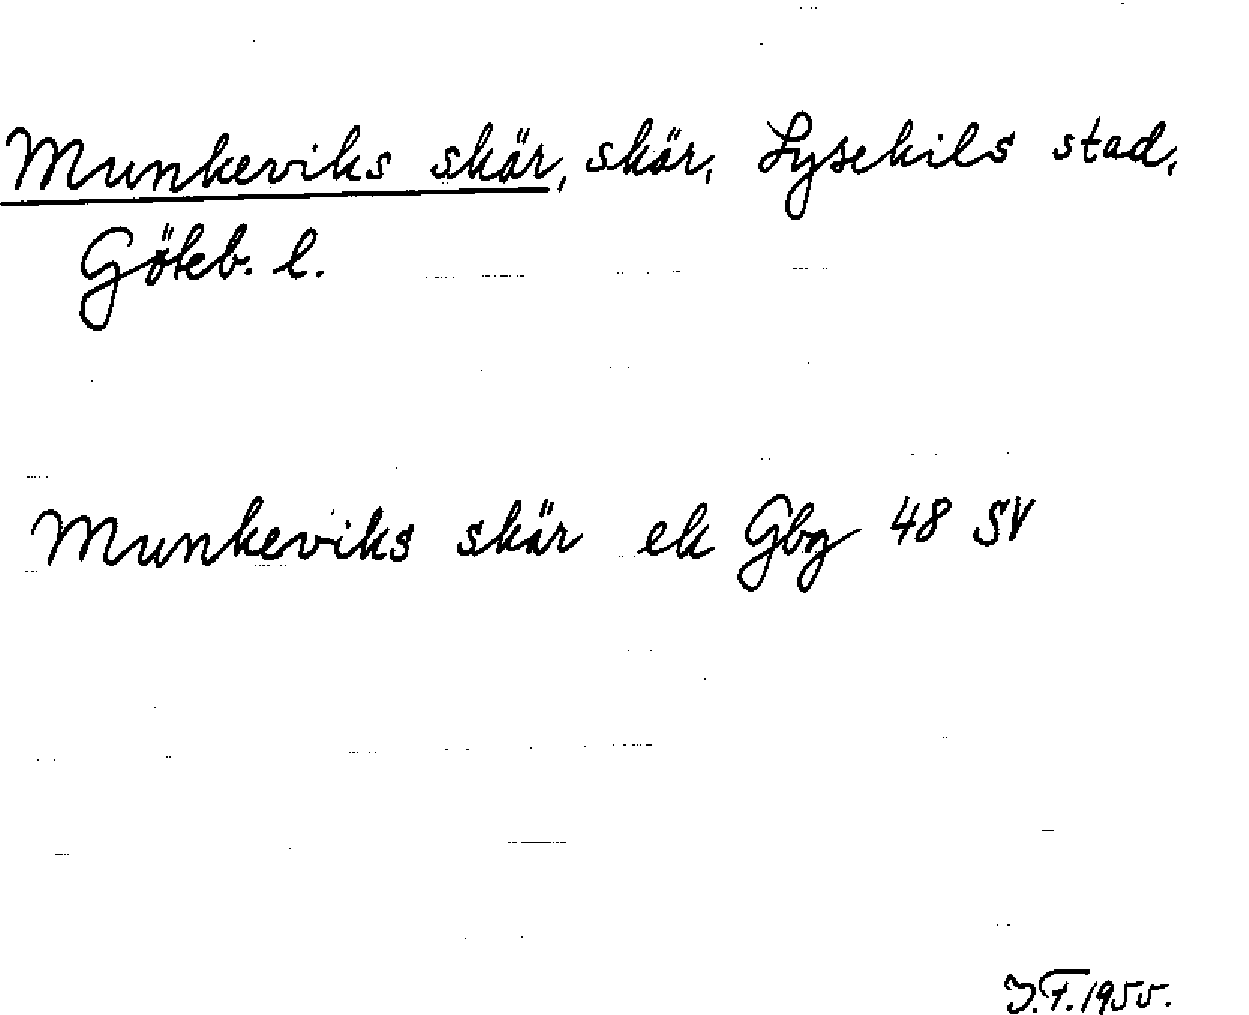 Munkeviks skär, skär, Lysekils stad,
Göteb. l.
Munkeviks skär ek Gbg 48 SV
I.F. 1955.